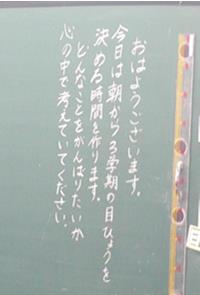 おはようございます。
今日は朝から3学期の目ひょうを
決める時間を作ります。
どんなことをがんばりたいか
心の中で考えていてください。